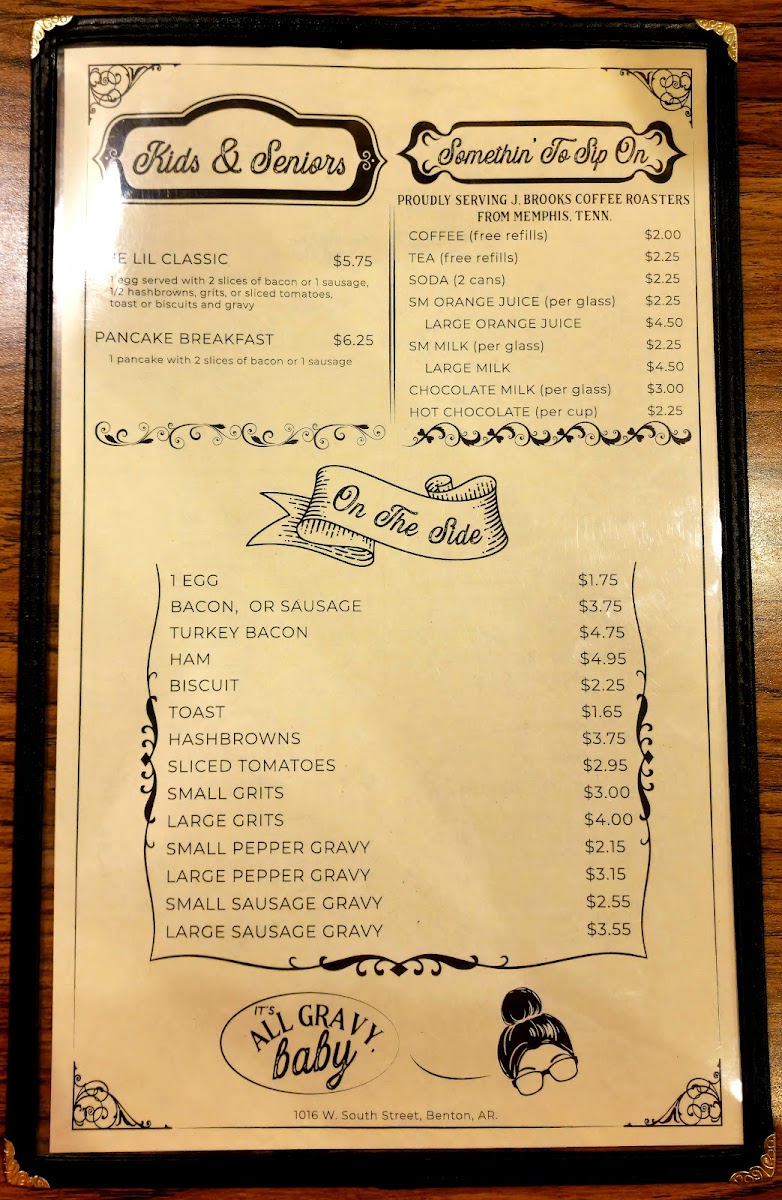 Kids & Seniors
E LIL CLASSIC $5.75
1 egg served with 2 slices of bacon or 1 sausage,
1/2 hashbrowns, grits, or sliced tomatoes,
toast or biscuits and gravy
PANCAKE BREAKFAST $6.25
1 pancake with 2 slices of bacon or 1 sausage
Somethin' To Sip On
PROUDLY SERVING J. BROOKS COFFEE ROASTERS
FROM MEMPHIS, TENN.
COFFEE (free refills) $2.00
TEA (free refills) $2.25
SODA (2 cans) $2.25
SM ORANGE JUICE (per glass) $2.25
LARGE ORANGE JUICE $4.50
SM MILK (per glass) $2.25
LARGE MILK $4.50
CHOCOLATE MILK (per glass) $3.00
HOT CHOCOLATE (per cup) $2.25
On The Side
1 EGG $1.75
BACON, OR SAUSAGE $3.75
TURKEY BACON $4.75
HAM $4.95
BISCUIT $2.25
TOAST $1.65
HASHBROWNS $3.75
SLICED TOMATOES $2.95
SMALL GRITS $3.00
LARGE GRITS $4.00
SMALL PEPPER GRAVY $2.15
LARGE PEPPER GRAVY $3.15
SMALL SAUSAGE GRAVY $2.55
LARGE SAUSAGE GRAVY $3.55
IT'S
ALL GRAVY,
baby
1016 W. South Street, Benton, AR.